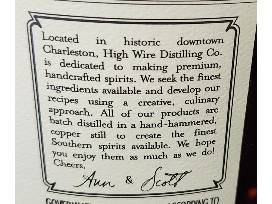 Located in historic downtown
Charleston, High Wire Distilling Co.
is dedicated to making premium,
handcrafted spirits. We seek the finest
ingredients available and develop our
recipes using a creative, culinary
approach. All of our products are
batch distilled in a hand-hammered,
copper still to create the finest
Southern spirits available. We hope
you enjoy them as much as we do!
Cheers,
Ann & Scott